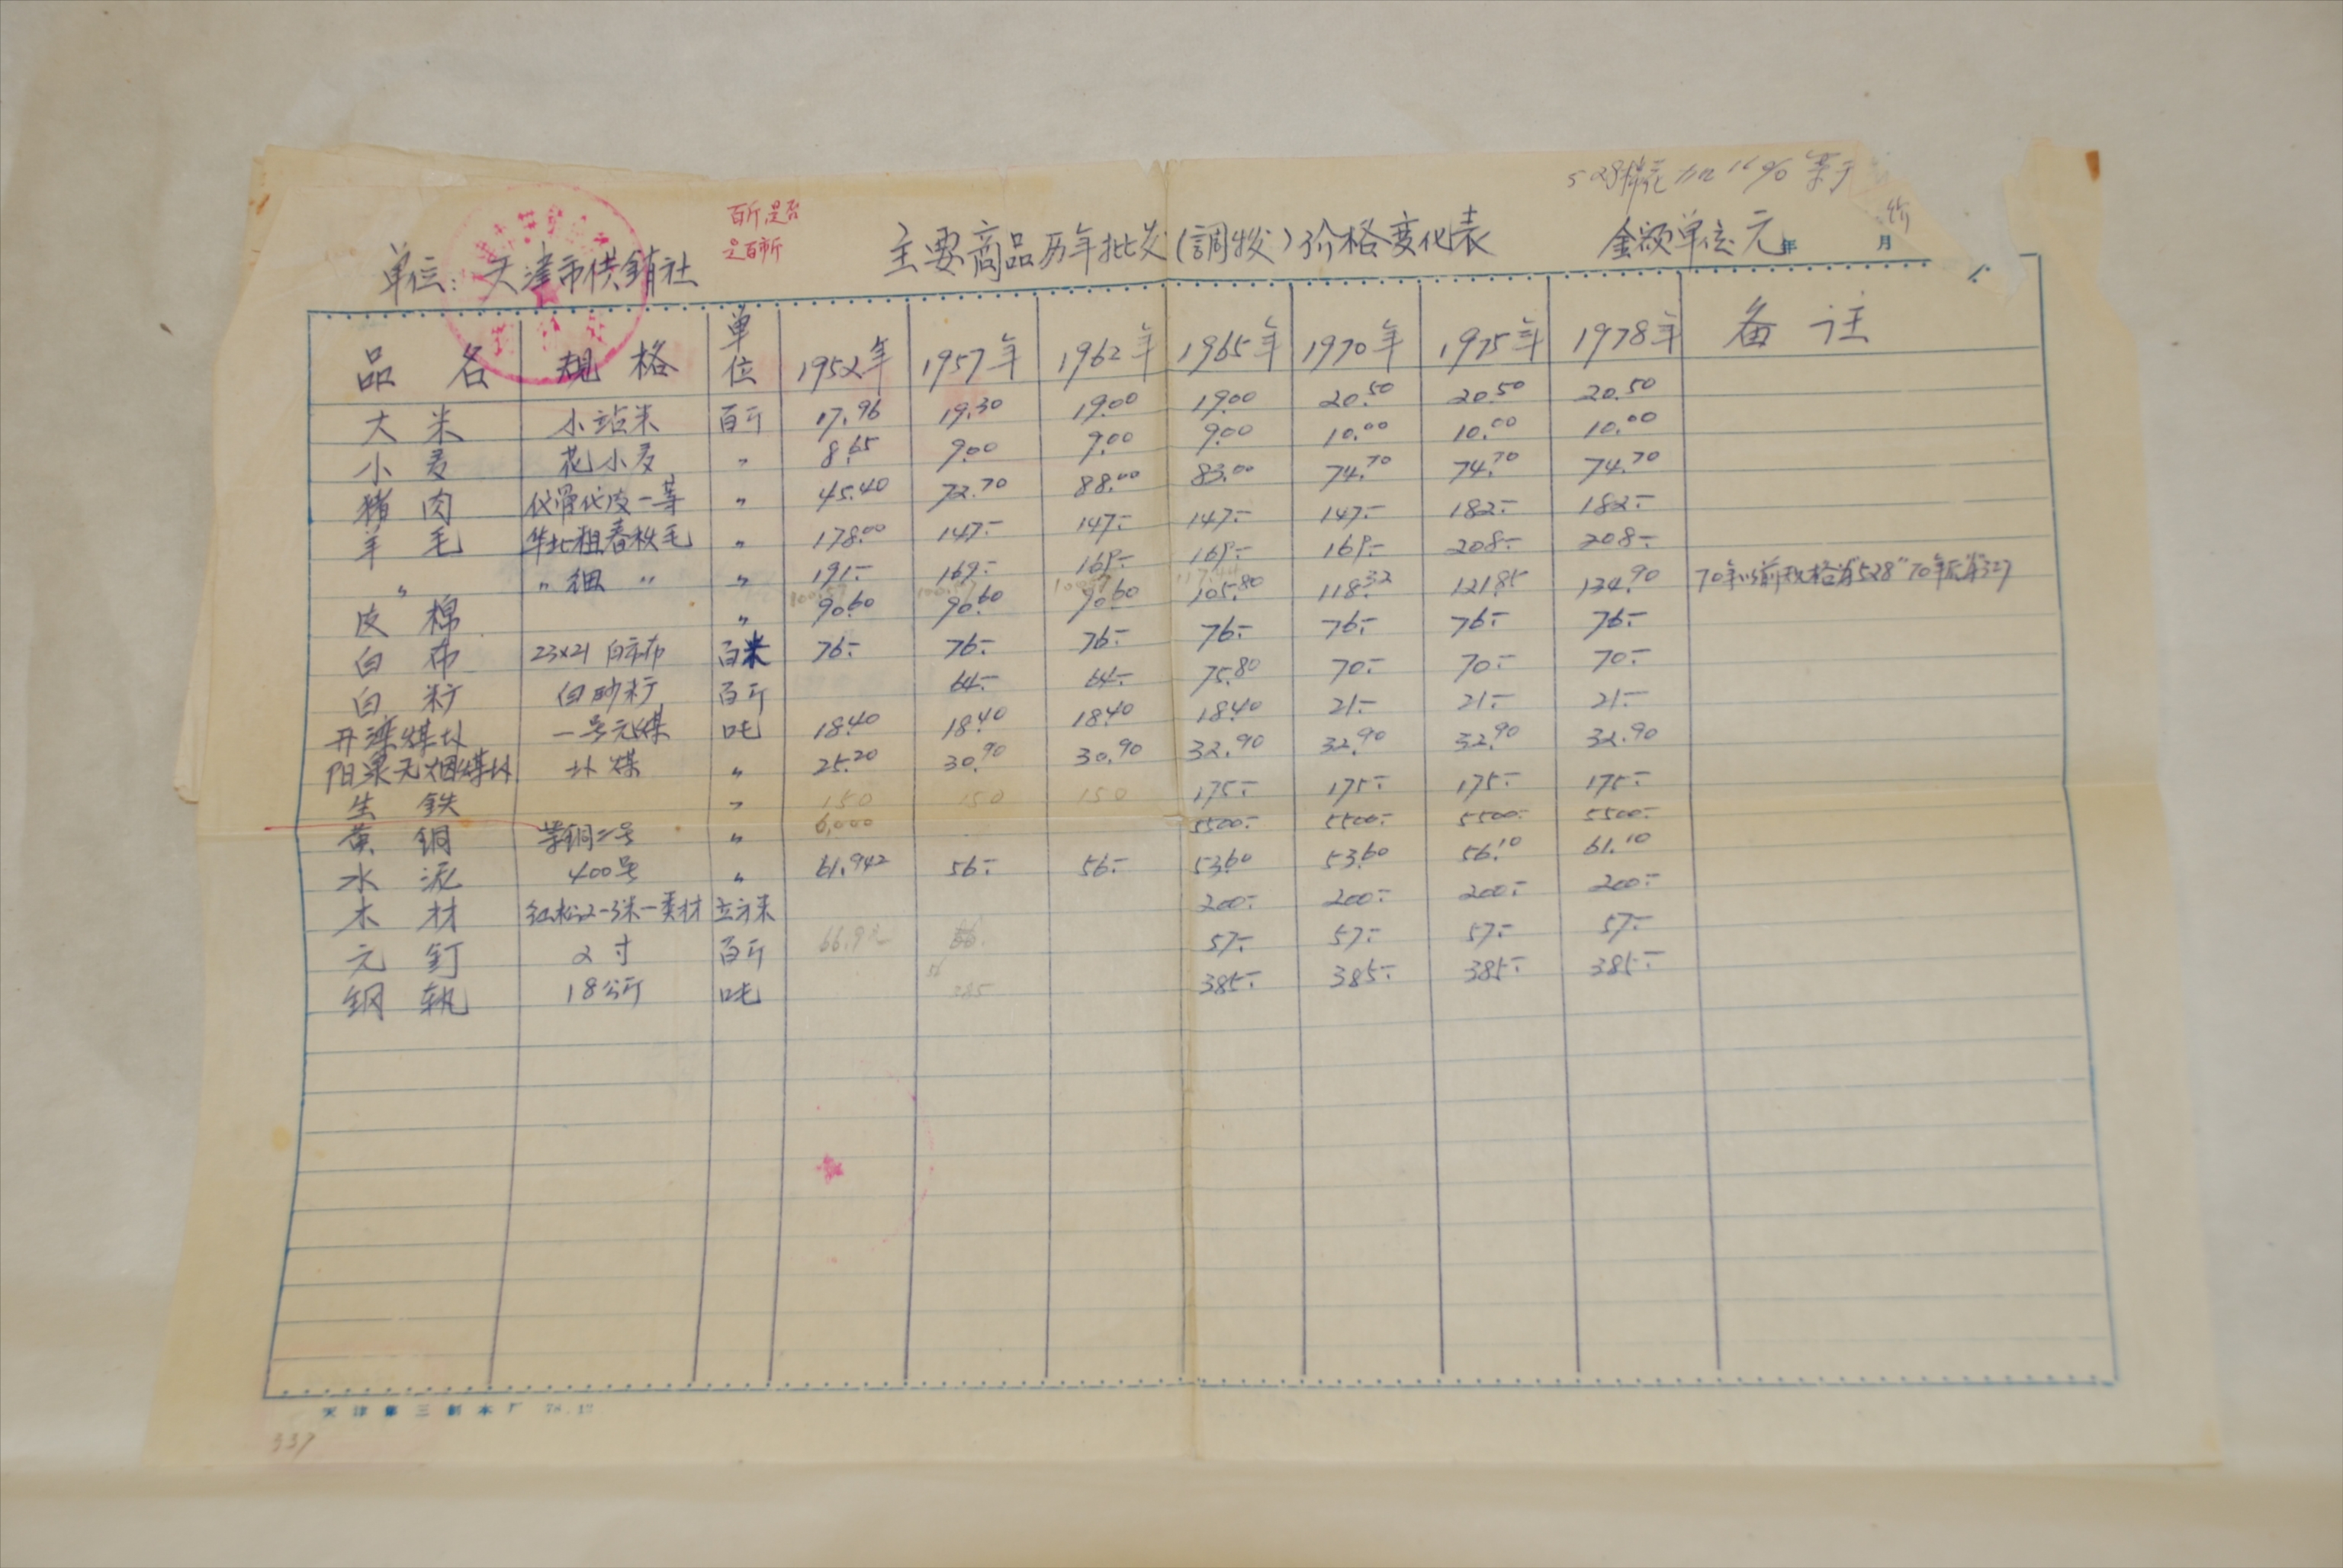 528棉花加16%等于
百斤是否
是百市斤
单位：天津市供销社 主要商品历年批发(調拨)价格变化表 金额单位元 年 月
品名 规格 单位 1952年 1957年 1962年 1965年 1970年 1975年 1978年 备注
大米 小站米 百斤 17.96 19.30 19.00 19.00 20.50 20.50 20.50
小麦 花小麦 〃 8.65 9.00 9.00 9.00 10.00 10.00 10.00
猪肉 代骨代皮一等 〃 45.40 72.70 88.00 83.00 74.70 74.70 74.70
羊毛 华北粗春秋毛 〃 178.00 147.- 147.- 147.- 147.- 182.- 182.-
〃 〃细〃 〃 191.- 169.- 169.- 169.- 169.- 208.- 208.-
皮棉 〃 90.60 90.60 90.60 105.80 118.32 121.85 134.90 70年以前规格为"528"70年后为"327
白布 23×21白市布 百米 76.- 76.- 76.- 76.- 76.- 76.- 76.-
白籿 白砂籿 百斤 64.- 64.- 75.80 70.- 70.- 70.-
开滦煤块 一号元煤 吨 18.40 18.40 18.40 18.40 21.- 21.- 21.-
阳泉无烟煤块 块煤 〃 25.20 30.90 30.90 32.90 32.90 32.90 32.90
生铁 〃 150 150 150 175.- 175.- 175.- 175.-
黄铜 紫铜二号 〃 6,000 5500.- 5500.- 5500.- 5500.-
水泥 400号 〃 61.942 56.- 56.- 53.60 53.60 56.10 61.10
木材 红松2-3米一类材 立方米 200.- 200.- 200.- 200.-
元钉 2寸 百斤 57.- 57.- 57.- 57.-
钢轨 18公斤 吨 385 385.- 385.- 385.- 385.-
天津第三制本厂 78.12
337